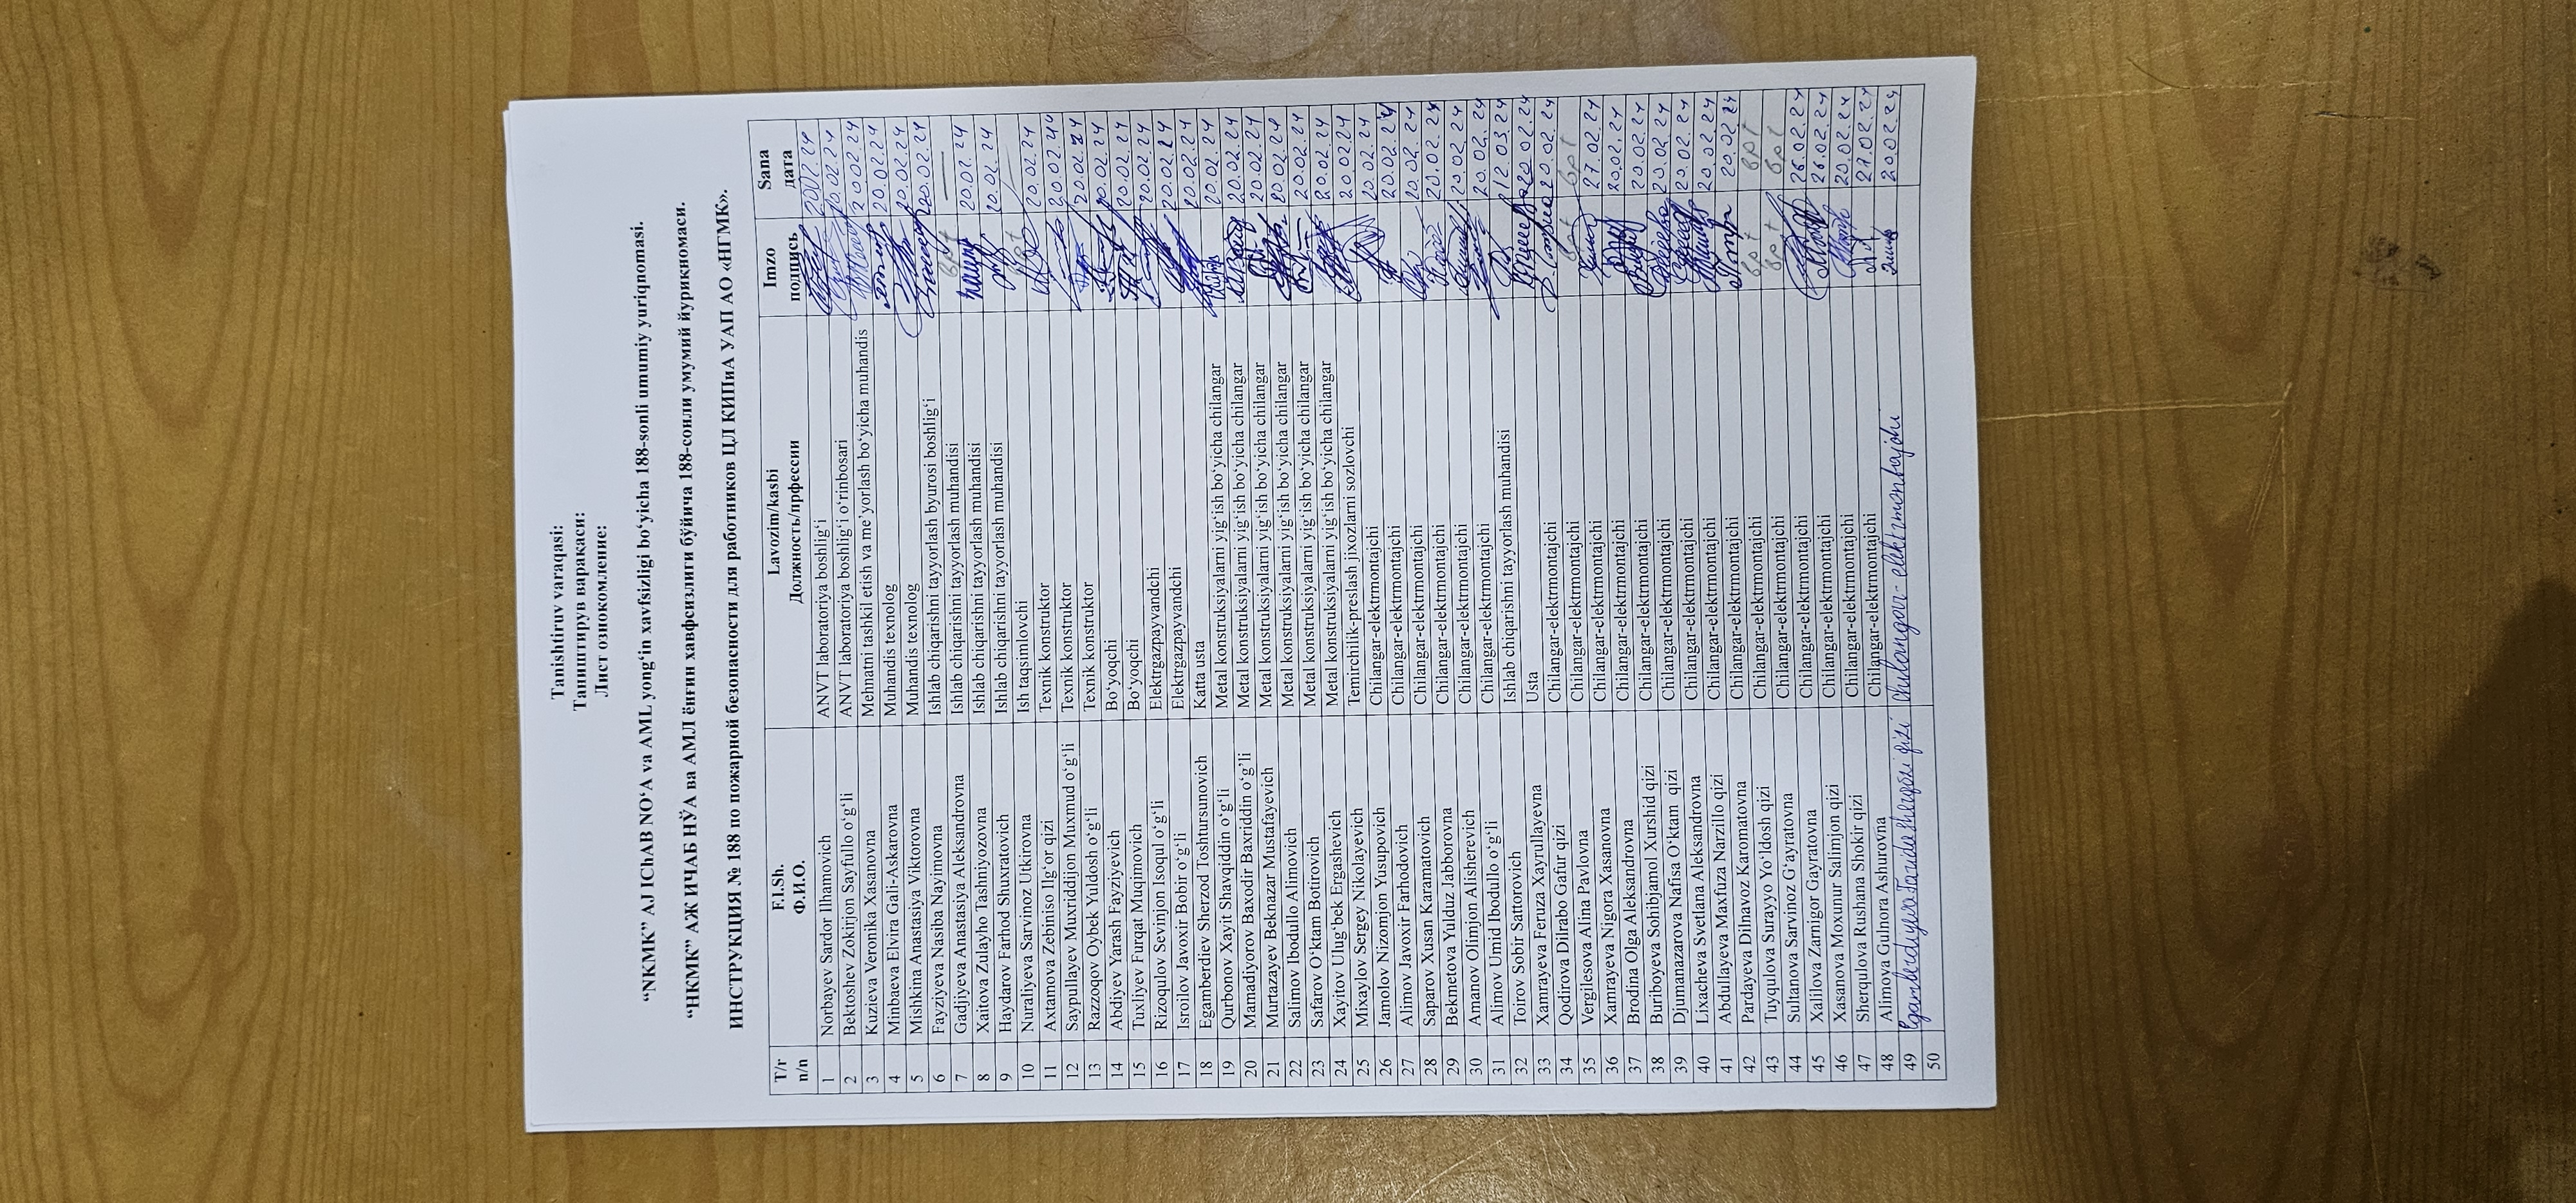 Tanishtiruv varaqasi:
Таништирув варакаси:
Лист ознокомление:
“NKMK” AJ IChAB NO‘A va AML yong‘in xavfsizligi bo‘yicha 188-sonli umumiy yuriqnomasi.
“НКМК” АЖ ИЧАБ НЎА ва АМЛ ёнғин хавфсизлиги бўйича 188-сонли умумий йурикномаси.
ИНСТРУКЦИЯ № 188 по пожарной безопасности для работников ЦЛ КИПиА УАП АО «НГМК».
T/r F.I.Sh. Lavozim/kasbi Imzo Sana
п/п Ф.И.О. Должность/прфессии подпись дата
1 Norbayev Sardor Ilhamovich ANVT laboratoriya boshlig‘i
2 Bektoshev Zokinjon Sayfullo o‘g‘li ANVT laboratoriya boshlig‘i o‘rinbosari 20.02.24
3 Kuzieva Veronika Xasanovna Mehnatni tashkil etish va me’yorlash bo‘yicha muhandis 20.02.24
4 Minbaeva Elvira Gali-Askarovna Muhandis texnolog 20.02.24
5 Mishkina Anastasiya Viktorovna Muhandis texnolog 20.02.24
6 Fayziyeva Nasiba Nayimovna Ishlab chiqarishni tayyorlash byurosi boshlig‘i
7 Gadjiyeva Anastasiya Aleksandrovna Ishlab chiqarishni tayyorlash muhandisi 20.02.24
8 Xaitova Zulayho Tashniyozovna Ishlab chiqarishni tayyorlash muhandisi 20.02.24
9 Haydarov Farhod Shuxratovich Ishlab chiqarishni tayyorlash muhandisi
10 Nuraliyeva Sarvinoz Utkirovna Ish taqsimlovchi 20.02.24
11 Axtamova Zebiniso Ilg‘or qizi Texnik konstruktor 20.02.24
12 Saypullayev Muxriddijon Muxmud o‘g‘li Texnik konstruktor 20.02.24
13 Razzoqov Oybek Yuldosh o‘g‘li Texnik konstruktor 20.02.24
14 Abdiyev Yarash Fayziyevich Bo‘yoqchi 20.02.24
15 Tuxliyev Furqat Muqimovich Bo‘yoqchi 20.02.24
16 Rizoqulov Sevinjon Isoqul o‘g‘li Elektrgazpayvandchi 20.02.24
17 Isroilov Javoxir Bobir o‘g‘li Elektrgazpayvandchi 20.02.24
18 Egamberdiev Sherzod Toshtursunovich Katta usta 20.02.24
19 Qurbonov Xayit Shavqiddin o‘g‘li Metal konstruksiyalarni yig‘ish bo‘yicha chilangar 20.02.24
20 Mamadiyorov Baxodir Baxriddin o‘g‘li Metal konstruksiyalarni yig‘ish bo‘yicha chilangar 20.02.24
21 Murtazayev Beknazar Mustafayevich Metal konstruksiyalarni yig‘ish bo‘yicha chilangar 20.02.24
22 Salimov Ibodullo Alimovich Metal konstruksiyalarni yig‘ish bo‘yicha chilangar 20.02.24
23 Safarov O‘ktam Botirovich Metal konstruksiyalarni yig‘ish bo‘yicha chilangar 20.02.24
24 Xayitov Ulug‘bek Ergashevich Metal konstruksiyalarni yig‘ish bo‘yicha chilangar 20.02.24
25 Mixaylov Sergey Nikolayevich Temirchilik-preslash jixozlarni sozlovchi 20.02.24
26 Jamolov Nizomjon Yusupovich Chilangar-elektrmontajchi 20.02.24
27 Alimov Javoxir Farhodovich Chilangar-elektrmontajchi 20.02.24
28 Saparov Xusan Karamatovich Chilangar-elektrmontajchi 20.02.24
29 Bekmetova Yulduz Jabborovna Chilangar-elektrmontajchi 20.02.24
30 Amanov Olimjon Alisherevich Chilangar-elektrmontajchi 20.02.24
31 Alimov Umid Ibodullo o‘g‘li Chilangar-elektrmontajchi 12.03.24
32 Toirov Sobir Sattorovich Ishlab chiqarishni tayyorlash muhandisi 20.02.24
33 Xamrayeva Feruza Xayrullayevna Usta 20.02.24
34 Qodirova Dilrabo Gafur qizi Chilangar-elektrmontajchi
35 Vergilesova Alina Pavlovna Chilangar-elektrmontajchi 27.02.24
36 Xamrayeva Nigora Xasanovna Chilangar-elektrmontajchi 20.02.24
37 Brodina Olga Aleksandrovna Chilangar-elektrmontajchi 20.02.24
38 Buriboyeva Sohibjamol Xurshid qizi Chilangar-elektrmontajchi 20.02.24
39 Djumanazarova Nafisa O‘ktam qizi Chilangar-elektrmontajchi 20.02.24
40 Lixacheva Svetlana Aleksandrovna Chilangar-elektrmontajchi 20.02.24
41 Abdullayeva Maxfuza Narzillo qizi Chilangar-elektrmontajchi 20.02.24
42 Pardayeva Dilnavoz Karomatovna Chilangar-elektrmontajchi
43 Tuyqulova Surayyo Yo‘ldosh qizi Chilangar-elektrmontajchi
44 Sultanova Sarvinoz G‘ayratovna Chilangar-elektrmontajchi 26.02.24
45 Xalilova Zarnigor Gayratovna Chilangar-elektrmontajchi 26.02.24
46 Xasanova Moxunur Salimjon qizi Chilangar-elektrmontajchi 20.02.24
47 Sherqulova Rushana Shokir qizi Chilangar-elektrmontajchi 27.02.24
48 Alimova Gulnora Ashurovna Chilangar-elektrmontajchi 20.02.24
49 Egamberdiyeva qizi
50